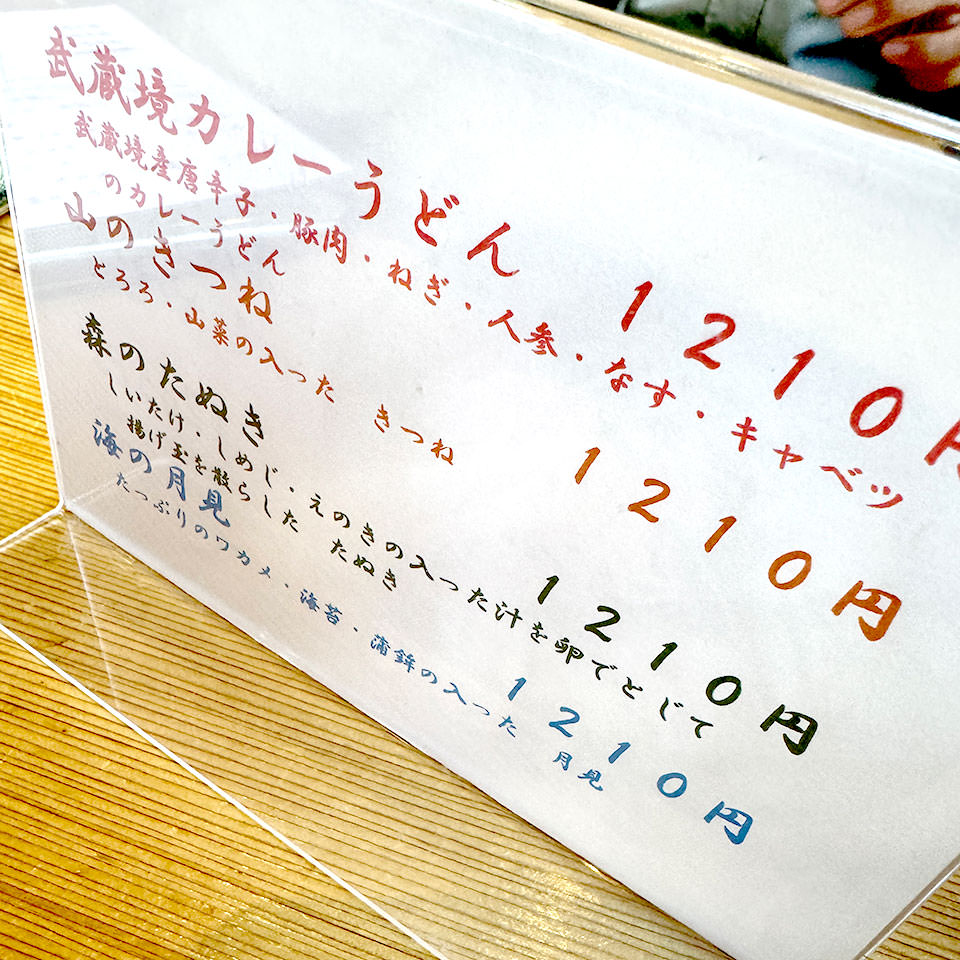 武蔵境カレーうどん　１２１０円
武蔵境産唐辛子・豚肉・ねぎ・人参・なす・キャベツ
のカレーうどん
山のきつね　１２１０円
とろろ・山菜の入った　きつね
森のたぬき　１２１０円
しいたけ・しめじ・えのきの入った汁を卵でとじて
揚げ玉を散らした　たぬき
海の月見　１２１０円
たっぷりのワカメ・海苔・蒲鉾の入った　月見